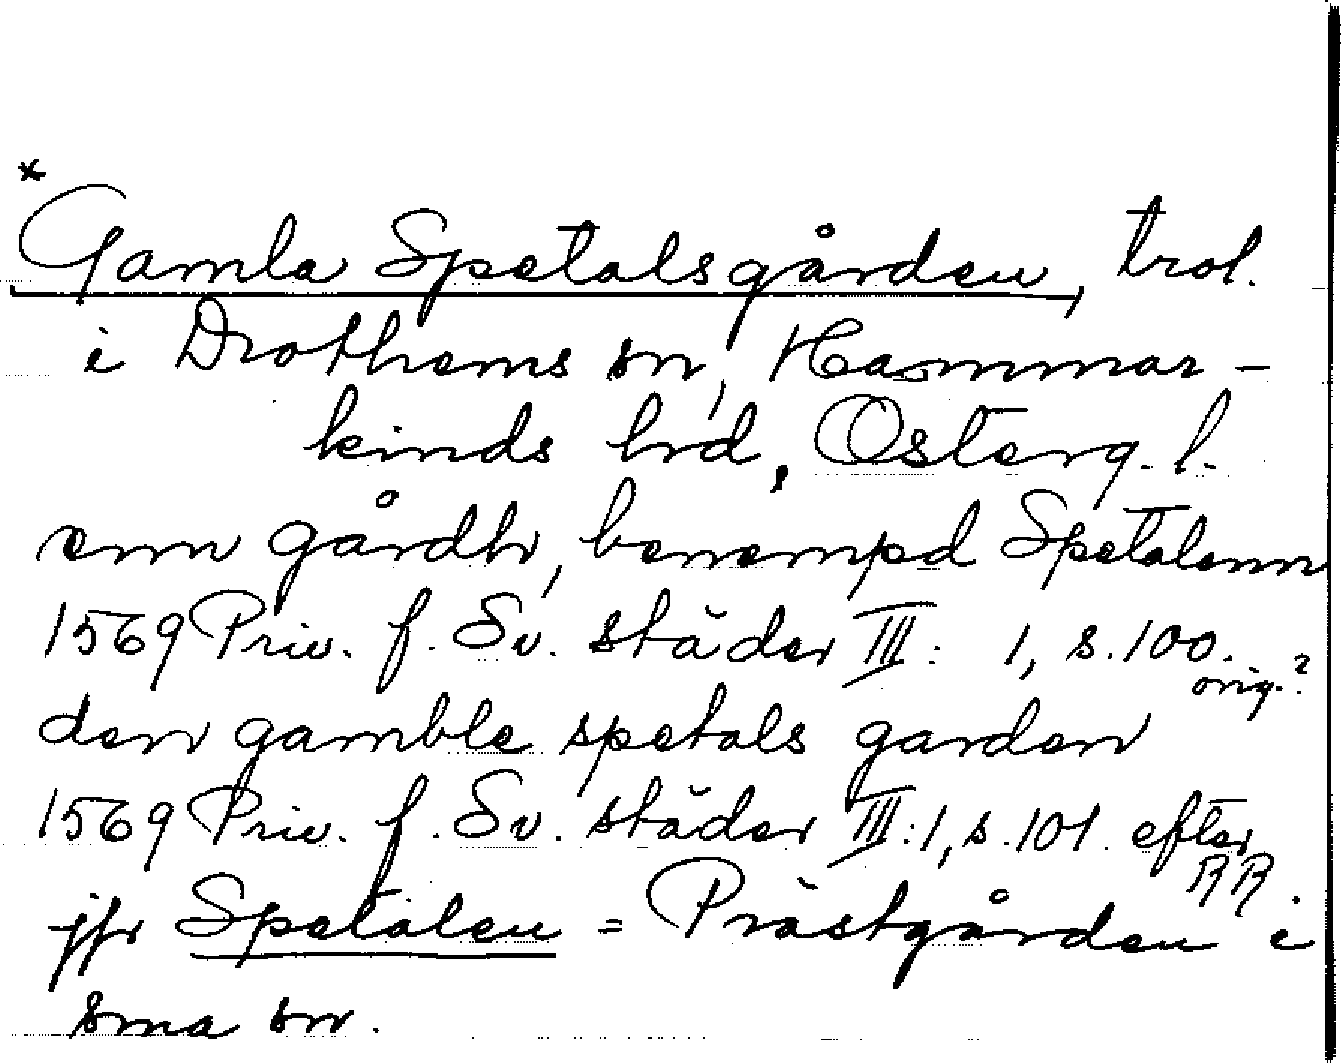 *
Gamla Spetalsgården, trol.
i Drothems sn, Hammar-
kinds hrd, Österg. l.
enn gårdh, benempd Spetalenn
1569 Priv. f. Sv. städer III: 1, s. 100.
orig.?
den gamble spetals garden
1569 Priv. f. Sv. städer III:1, s. 101. efter
RR.
jfr Spetalen = Prästgården i
sma sn.